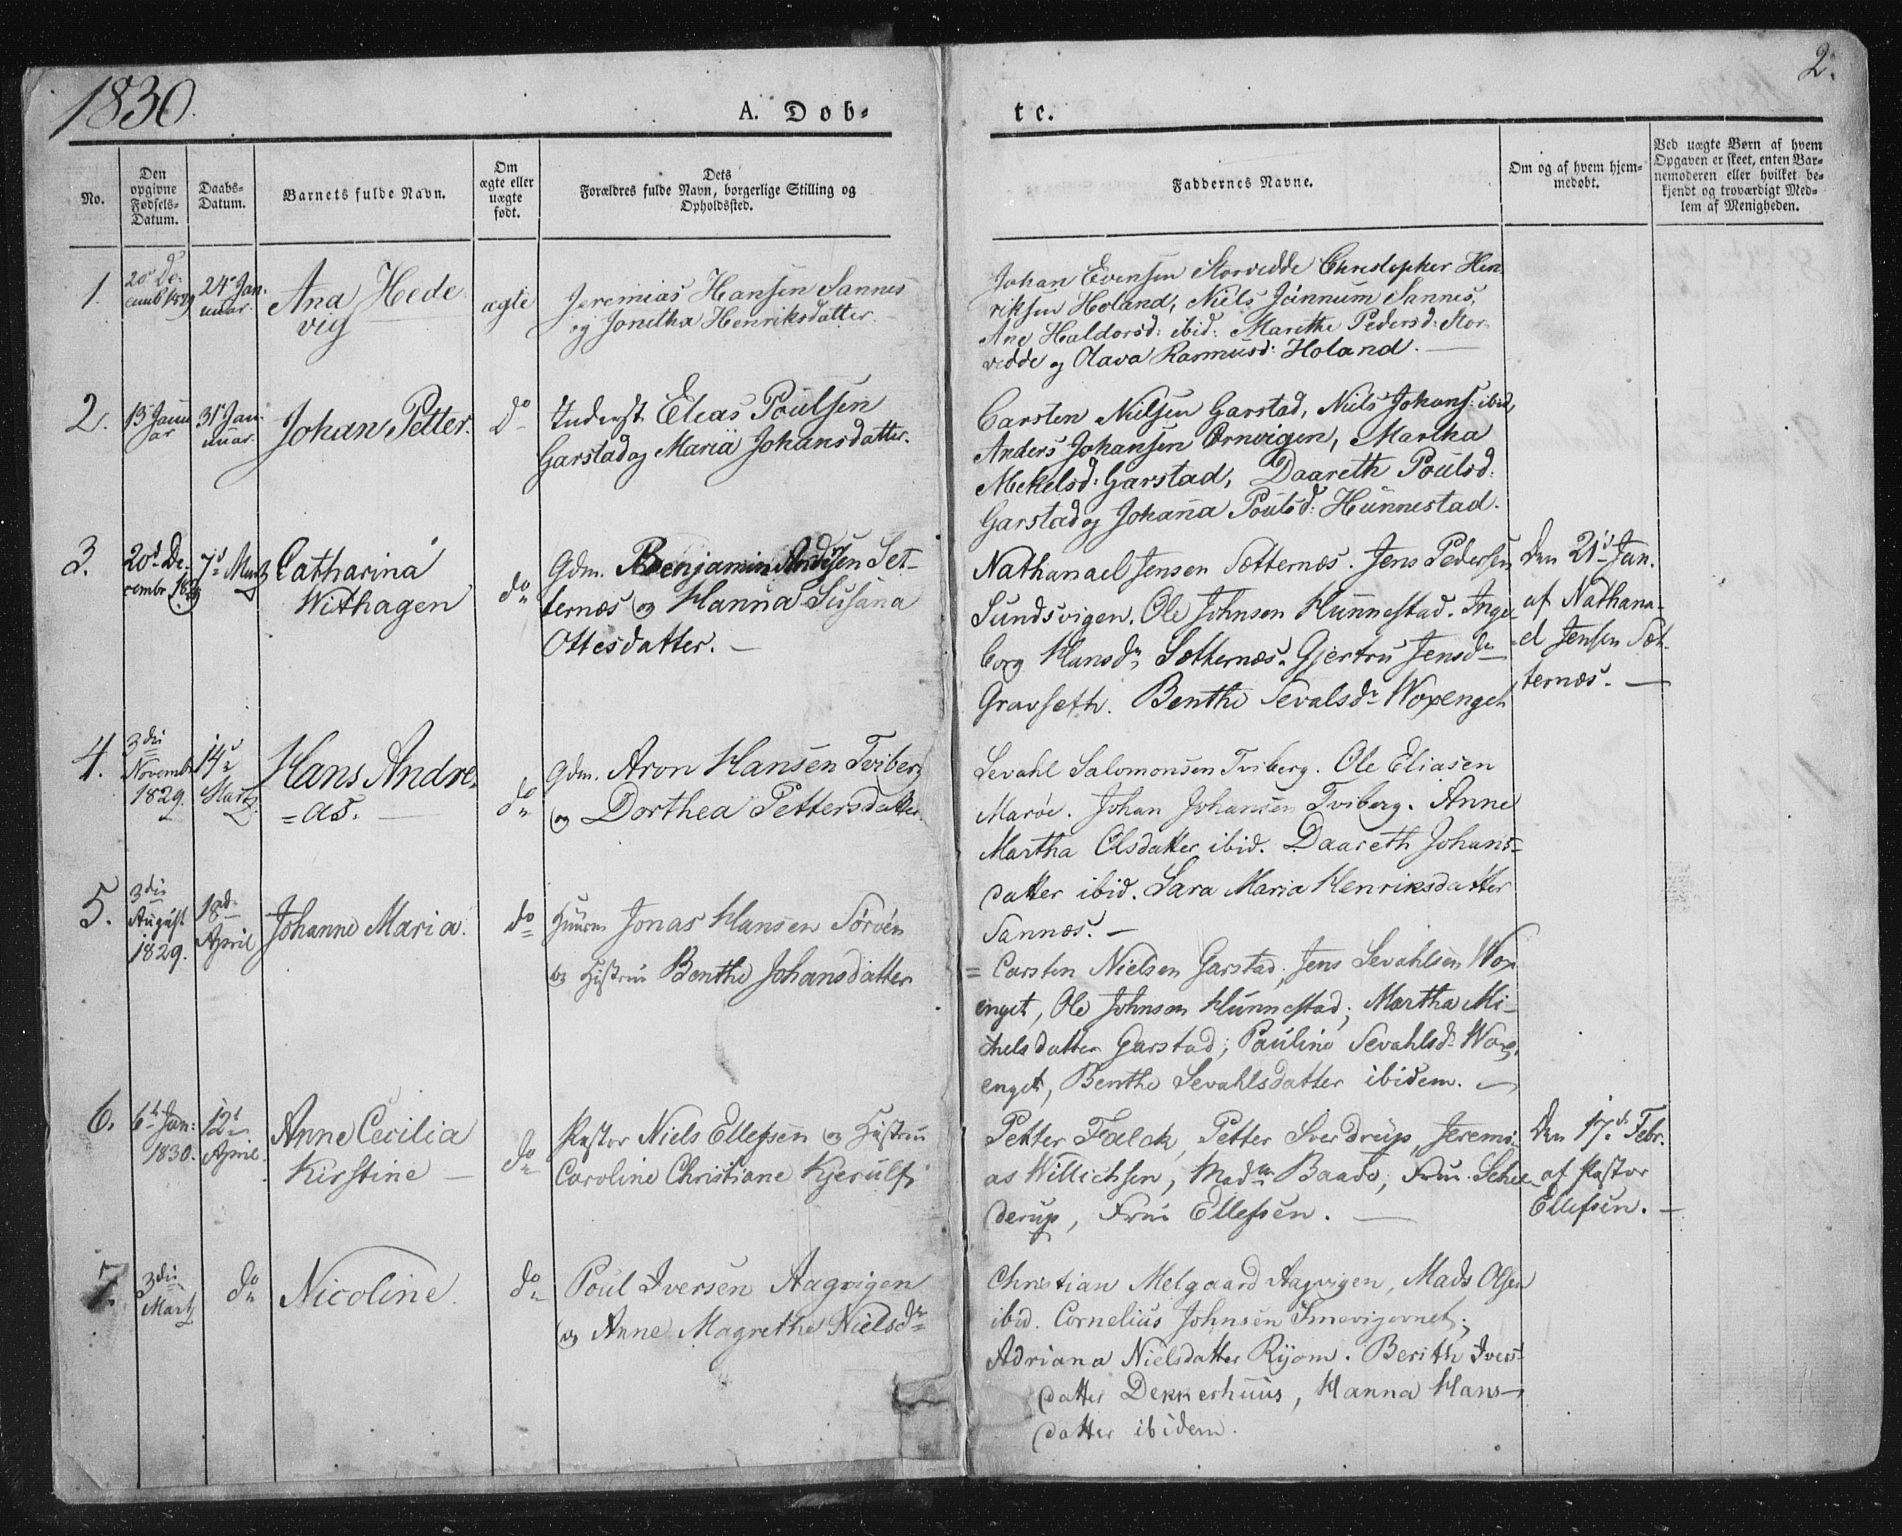 1830.
A. Døb-
te.
2.
No.
Den opgivne Fødsels-Datum.
Daabs-Datum.
Barnets fulde Navn.
Om ægte eller uægte født.
Dets
Forældres fulde Navn, borgerlige Stilling og
Opholdssted.
Faddernes Navne.
Om og af hvem hjem-
medøbt.
Ved uægte Børn af hvem
Opgaven er skeet, enten Bar-
nemoderen eller hvilket be-
kjendt og troværdigt Med-
lem af Menigheden.
1.
20de De-
cemb 1829
24de Jan-
uuar.
Ana Hede
vig
ægte
Jeremias Hansen Sannes
og Jonetha Henriksdatter
Johan Evensen Storvedde Christopher Hen
riksen Holand, Niels Jónnum Sannes,
Ane Haldorsd: ibid: Marethe Pedersd: Stor-
vedde og Olava Rasmusd: Holand.
2.
13 Janu
ar
31te Jan-
uuar.
Johan Petter.
do
Inderst Elias Poulsen
Garstad og Maria Johansdatter.
Carsten Nielsen Garstad, Niels Johans: ibid,
Anders Johansen Ornvigen, Martha
Mekelsd: Garstad, Daareth Poulsd:
Garstad og Johana Poulsd: Hunnestad.
3.
20d De-
cembr. 1829
7d Martz
Catharina
Withagen
do
Gdm. Benjamin Andsen Set-
ternæs og Hanna Susana
Ottesdatter. —
Nathanael Jensen Sætternæs. Jens Pedersen
Sundsvigen. Ole Johnsen Hunnestad. Inge
borg Hansdr Sætternæs. Gjertru Jensdr
Gravseth. Benthe Sevalsdr Woxenget
Den 21d Jan.
af Nathana-
el Jensen Sæt-
ternæs. —
4.
3die
Novemb
1829.
14d
Martz.
Hans Andre-
=as. —
do
Gdm. Aron Hansen Tviberg
og Dorthea Pettersdatter.
Sevahl Salomonsen Tviberg. Ole Eliasen
Marøe. Johan Johansen Tviberg. Anne
Martha Olsdatter ibid. Daareth Johans-
datter ibid. Sara Maria Henriksdatter
Sannæs. —
5.
3die
August
1829.
18d
April
Johanne Maria.
do
Huusm Jonas Hansen Sørøen
og Hustrue Benthe Johansdatter
= Carsten Nielsen Garstad, Jens Sevahlsen Wox
enget, Ole Johnson Hunnestad; Martha Mi-
chelsdatter Garstad; Pauline Sevahlsdr Wox,
enget, Benthe Sevahlsdatter ibidem. —
6.
6t Jan:
1830.
12t
April.
Anne Cecilia
Kirstine —
do
Pastor Niels Ellefsen og Hustrue
Caroline Christiane Kjerulf
Petter Falck, Petter Sverdrup, Jeremi
as Willichsen, Madm Baade, Frue Schel
derup, Frue Ellefsen. —
Den 17d Febr.
af Pastor
Ellefsen. —
7.
3die
Martz
do
Nicoline.
do
Poul Iversen Aagvigen
og Anne Magrethe Nielsdr
Christian Melgaard Aagvigen, Mads Olsen
ibid. Cornelius Johnsen
Adriana Nielsdatter Ryom. Berith Ivers-
datter Dekkerhuus, Hanna Hans-
datter ibidem.